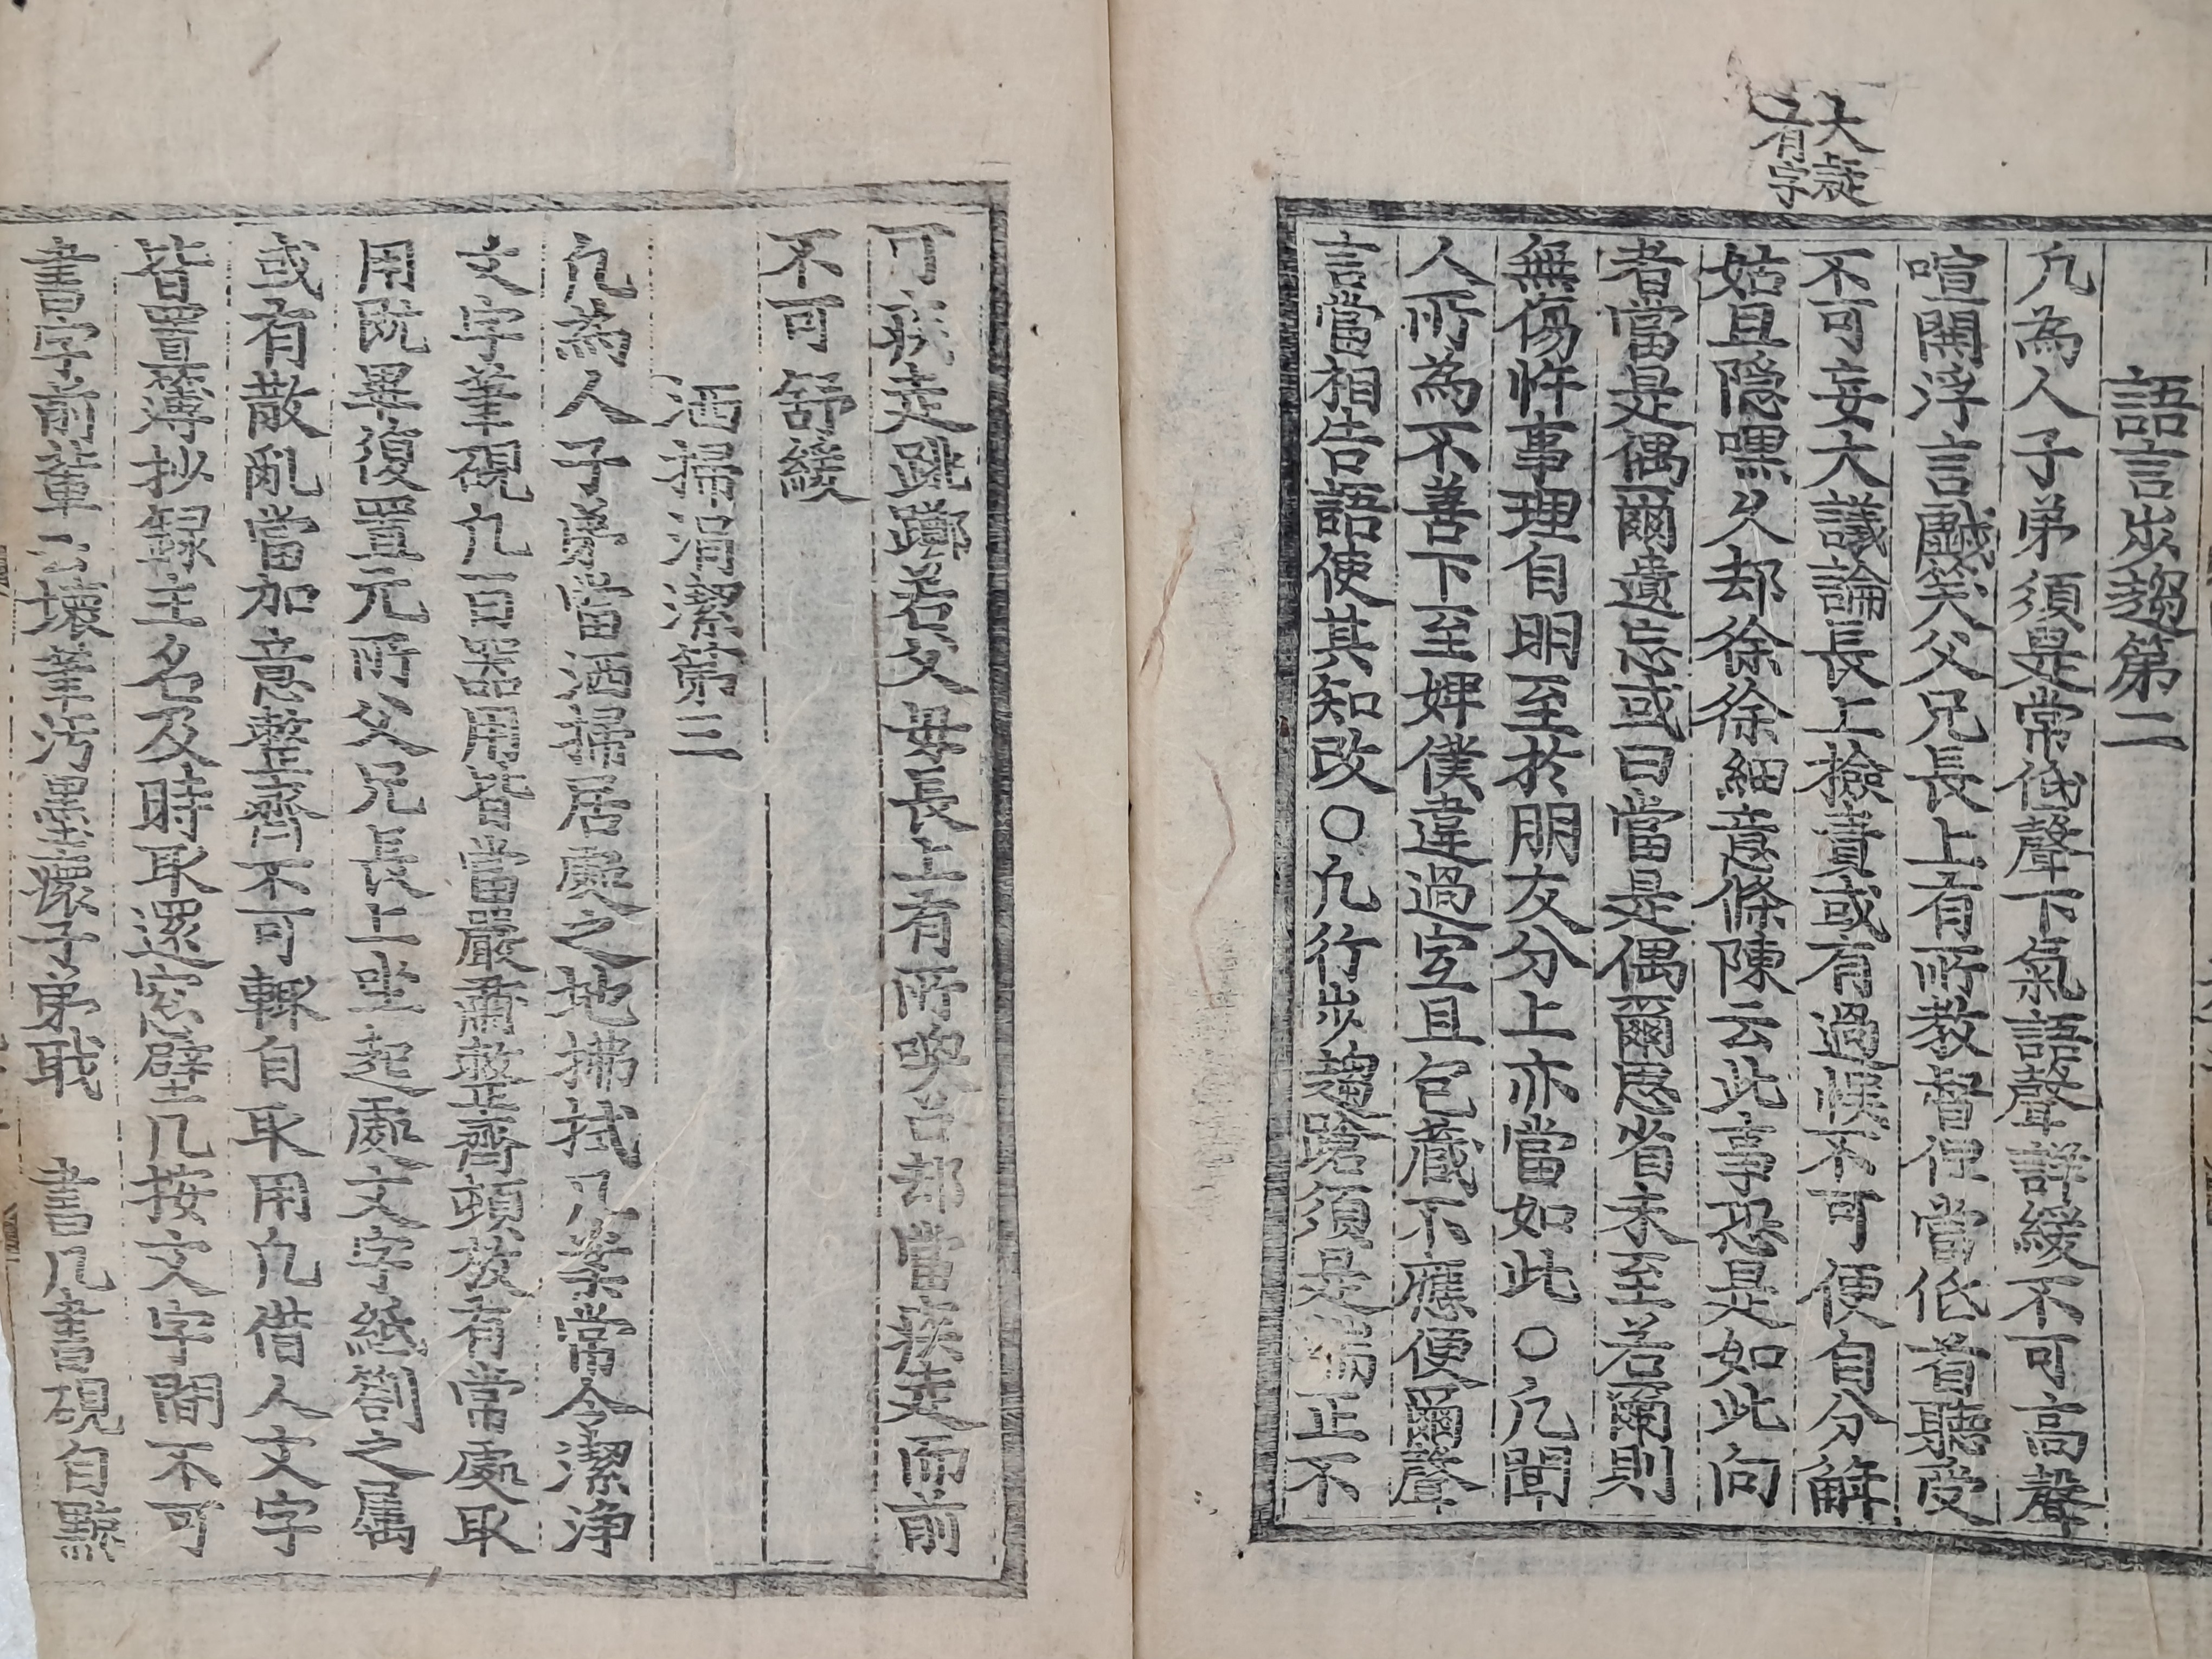 大疑
有字
語言步趨第二
凢為人子弟須是常低聲下氣語聲詳緩不可高聲
喧鬨浮言戱笑父兄長上有所教督但當低首聽受
不可妄大議論長上撿責或有過悞不可便自分解
姑且隱嘿久却徐徐細意條陳云此事恐是如此向
者當是偶爾遺忘或曰當是偶爾思省未至若爾則
無傷忤事理自明至於朋友分上亦當如此○凢聞
人所為不善下至婢僕違過宜且包藏不應便爾聲
言當相告語使其知改○凢行步趨蹌須是端正不
可疾走跳躑若父母長上有所喚召却當疾走而前
不可舒緩
洒掃涓潔第三
凢爲人子弟當洒掃居處之地拂拭几案常令潔淨
文字筆硯凢百器用皆當嚴肅整齊頓放有常處取
用既畢復置元所父兄長上坐起處文字紙劄之屬
或有散亂當加意整齊不可輒自取用凢借人文字
皆置簿抄録主名及時取還窓壁几案文字間不可
書字前輩云壞筆汚墨瘝子弟職 書几書硯自黥